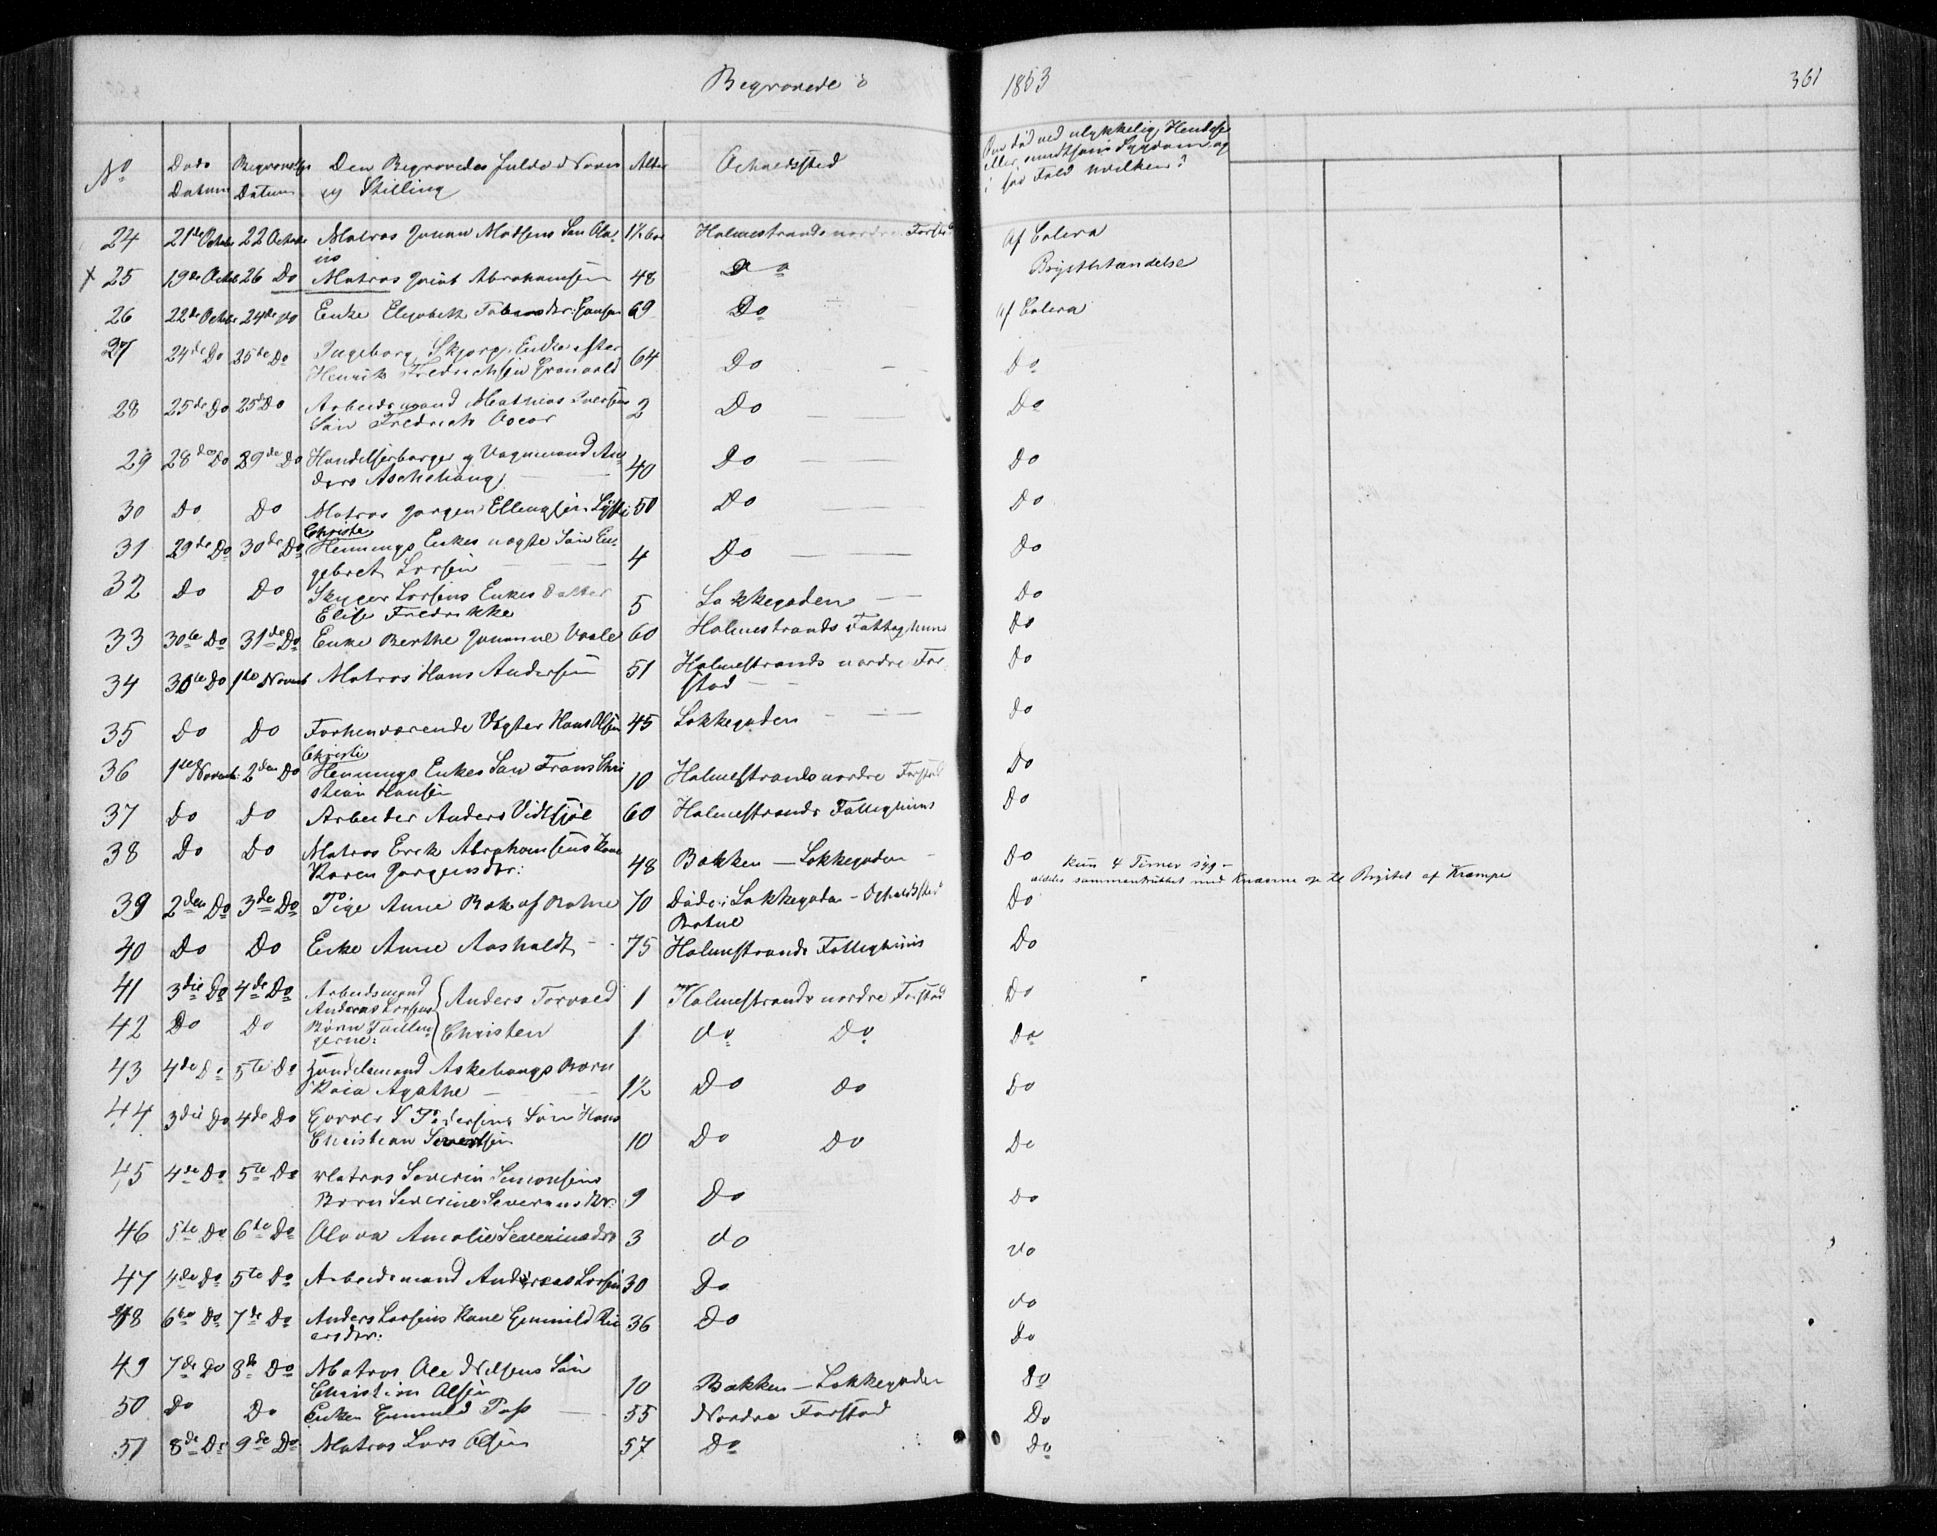 Begravede i 1853 361
No Døds Datum Begravelses Datum Den Begravedes fulde Navn og Stilling Alder Opholdssted Om død ved ulykkelig Hendelse eller smitsom Sygdom og i saa Fald hvilken?
24 21de Octobr 22 Octobr Matros Johan Madsens Søn 1½ Holmestrands nordre Forstad Af Colera
x 25 19de Octob 26 Do Matros Jacob Abrahamsen 48 Do Brystbetændelse
26 22de Octobr 24de Do Enke Elisabeth 69 Do Af Colera
27 24de Do 25de Do Ingeborg Skjørp, Enke efter
Henrik Fredrichsen Grønvold 64 Do Do
28 25de Do 25de Do Arbeidsmand Mathias Iversens
Søn Fredrich Oscar 2 Do Do
29 28de Do 29de Do Handelsborger og Vognmand An-
ders Aschehoug 40 Do Do
30 Do Do Matros Jørgen Ellingsen 50 Do Do
31 29de Do 30de Do Christi
Hennings Enkes uægte Søn En-
gebret Larsen 4 Do Do
32 Do Do Larsens Enkes Datter
Elise Fredrikke 5 Løkkegaden Do
33 30te Do 31de Do Enke Berthe Johanne Vaale 60 Holmestrands Fattighuus Do
34 30te Do 1ste Novemb Matros Hans Andersen 51 Holmestrands nordre For
stad Do
35 Do Do Forhenværende Vægter Hans Olsen 45 Løkkegaden Do
36 1ste Novemb: 2den Do Christi
Hennings Enkes Søn Frans Chri
stian Hansen 10 Holmestrands nordre Forstad Do
37 Do Do Arbeider Anders Vidsjøe 60 Holmestrands Fattighuus Do
38 Do Do Matros Erik Abrahamsens Kone
Karen Jørgensdr: 48 Bakken – Løkkegaden Do kun 4 Timer syg –
aldeles sammentrukket med Knæerne op til Brystet af Krampe
39 2den Do 3de Do Pige Anne Bak af Botne 70 Døde i Løkkegaden – Opholdssted
Botne Do
40 Do Do Enke Anne Aasholdt 75 Holmestrands Fattighuus Do
41 3die Do 4de Do Arbeidsmand
Andreas Larsens Anders Torvald 1 Holmestrands nordre Forstad Do
42 Do Do Børn Tvillin-
gerne: Christen 1 Do Do Do
43 4de Do 5te Do Handelsmand Askehougs Barn
Kaia Agathe 1½ Do Do Do
44 3die Do 4de Do Garver S Pedersens Søn Hans
Christian Severtsen 10 Do Do Do
45 4de Do 5te Do Matros Severin Simonsens
Børn Severine Severinsdr: 9 Do Do
46 5te Do 6te Do Olava Amalie Severinsdr 3 Do Do
47 4de Do 5te Do Arbeidsmand Andreas Larsen 30 Do Do
48 6te Do 7de Do Anders Larsens Kone Gunnild
ersdr: 36 Do Do
49 7de Do 8de Do Matros Ole Nilsens Søn
Christian Olsen 10 Bakken – Løkkegaden Do
50 Do Do Enken Gunnild 55 Nordre Forstad Do
51 8de Do 9de Do Matros Lars Olsen 57 Do Do